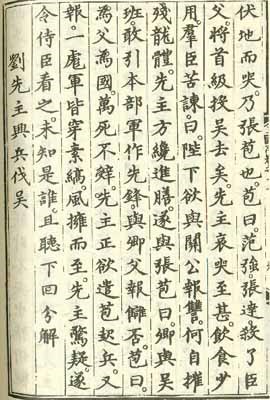 伏地而哭。乃張苞也。苞曰。范強。張達殺了臣
父。將首級投吳去矣。先主哀哭至甚。飲食少
用。羣臣苦諫曰。陛下欲與關公報讐。何自摧
殘龍體。先主方纔進膳。遂與張苞曰。卿與吳
班敢引本部軍作先鋒。與卿父報讎否。苞曰。
為父為國。萬死不辭。先主正欲遣苞起兵。又
報。一彪軍皆穿素縞。風擁而至。先主驚疑。遂
令侍臣看之。未知是誰。且聽下回分解
劉先主興兵伐吳